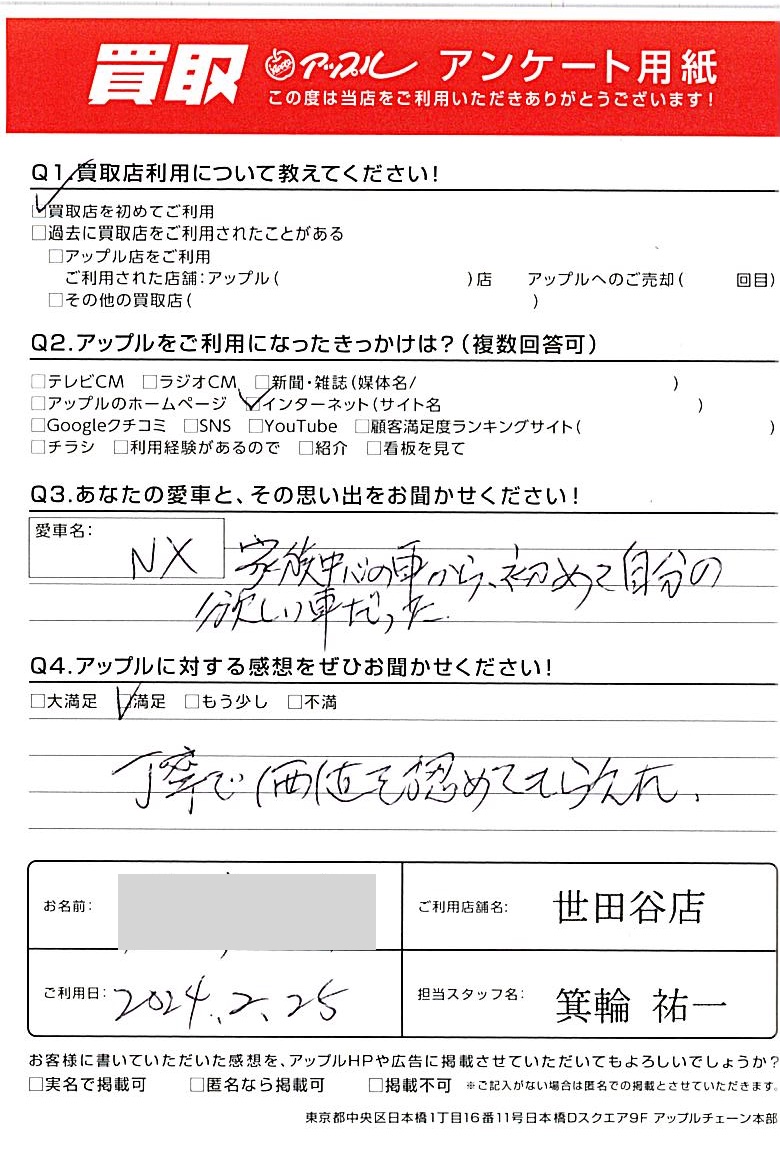 買取 アップル アンケート用紙
この度は当店をご利用いただきありがとうございます!
Q1.買取店利用について教えてください!
☑買取店を初めてご利用
□過去に買取店をご利用されたことがある
□アップル店をご利用
ご利用された店舗:アップル( )店 アップルへのご売却( 回目)
□その他の買取店( )
Q2.アップルをご利用になったきっかけは?(複数回答可)
□テレビCM □ラジオCM □新聞・雑誌(媒体名/ )
□アップルのホームページ ☑インターネット(サイト名 )
□Googleクチコミ □SNS □YouTube □顧客満足度ランキングサイト( )
□チラシ □利用経験があるので □紹介 □看板を見て
Q3.あなたの愛車と、その思い出をお聞かせください!
愛車名:
NX 家族中心の車から、初めて自分の
欲しい車だった.
Q4.アップルに対する感想をぜひお聞かせください!
□大満足 ☑満足 □もう少し □不満
丁寧で価値を認めてもらえた、
お名前: ご利用店舗名: 世田谷店
ご利用日: 2024.2.25 担当スタッフ名: 箕輪 祐一
お客様に書いていただいた感想を、アップルHPや広告に掲載させていただいてもよろしいでしょうか?
□実名で掲載可 □匿名なら掲載可 □掲載不可 ※ご記入がない場合は匿名での掲載とさせていただきます。
東京都中央区日本橋1丁目16番11号日本橋Dスクエア9F アップルチェーン本部